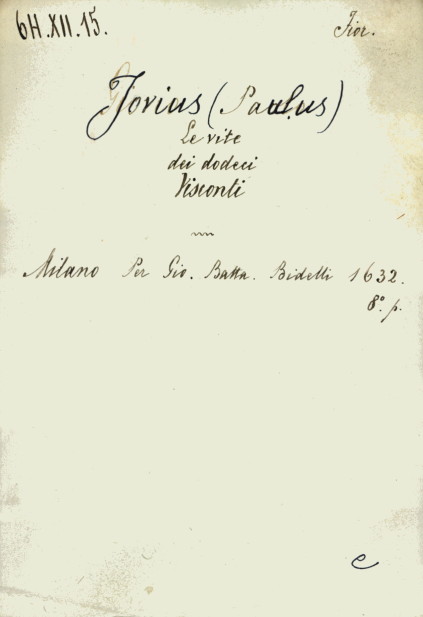 6H.XII.15.
Fior.
Jovius (Paulus)
Le vite
dei dodeci
Visconti
Milano Per Gio. Batta. Bidelli 1632.
8º. p.
e